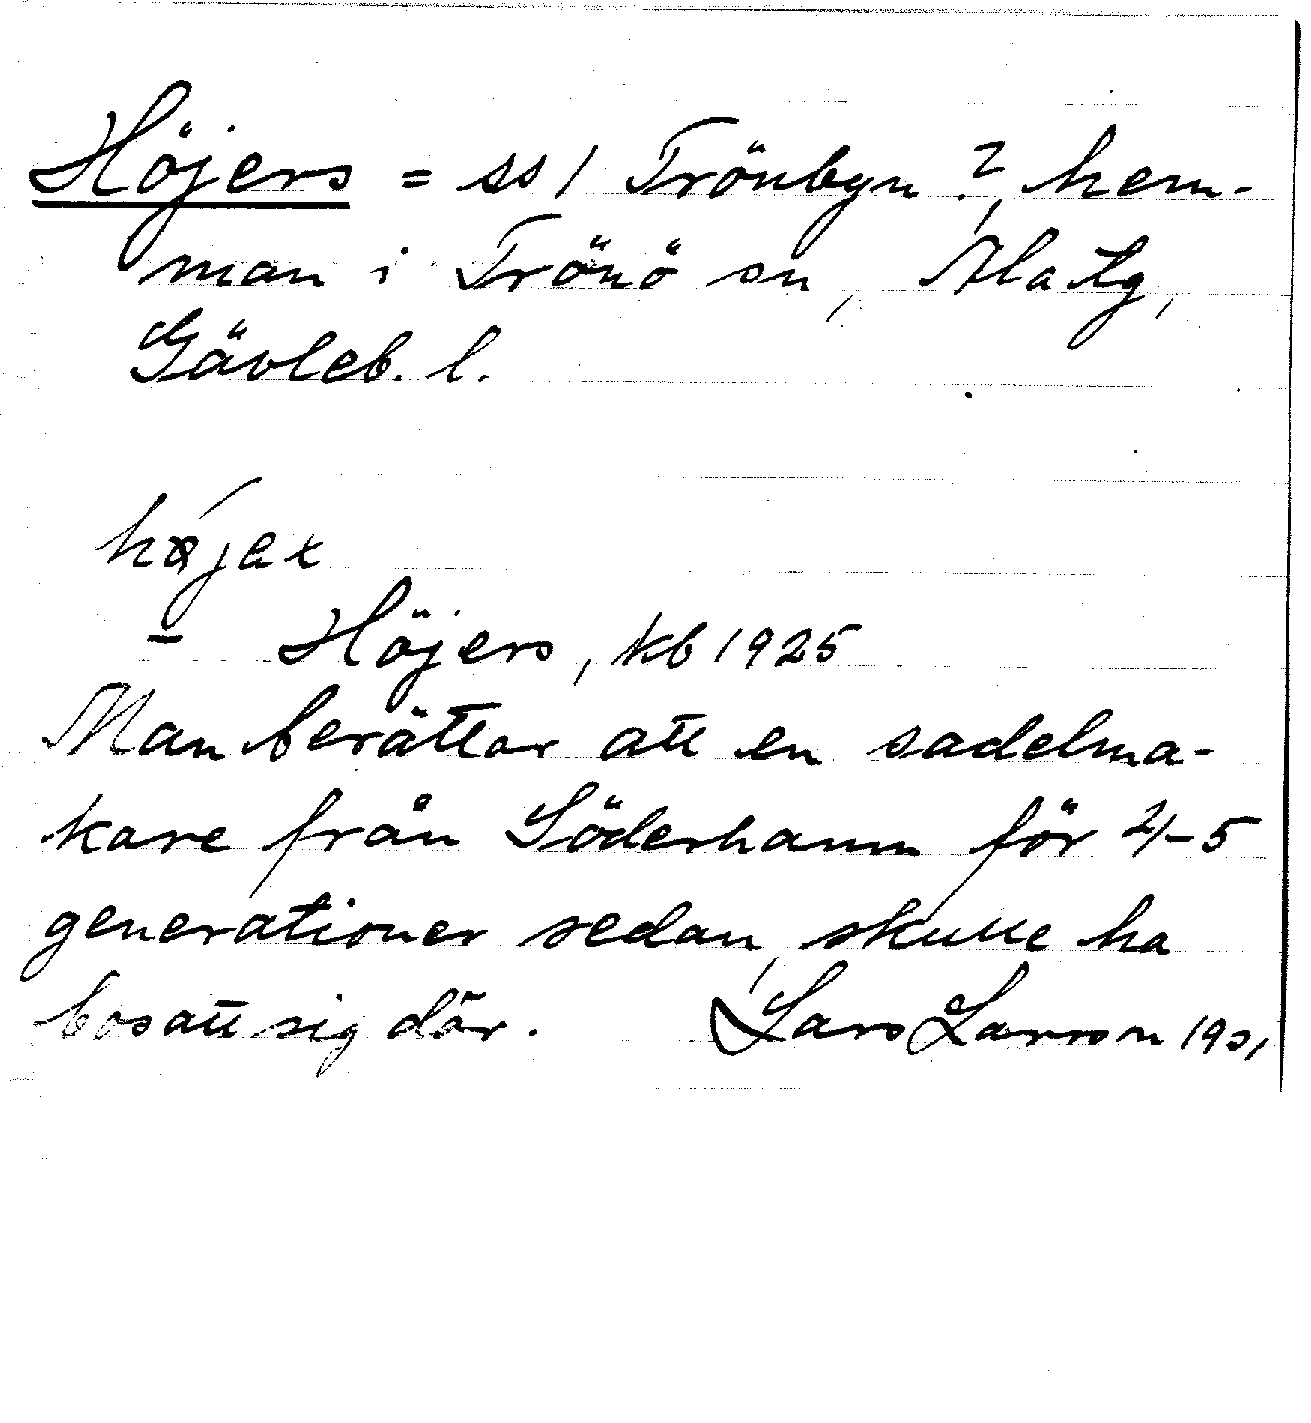 Höjers = ss 1 Trönbyn ?, hem-
man i Trönö sn, Ala tg,
Gävleb. l.
Höjers, kb 1925
Man berättar att en sadelma-
kare från Söderhamn för 4-5
generationer sedan, skulle ha
bosatt sig där. Lars Larsson